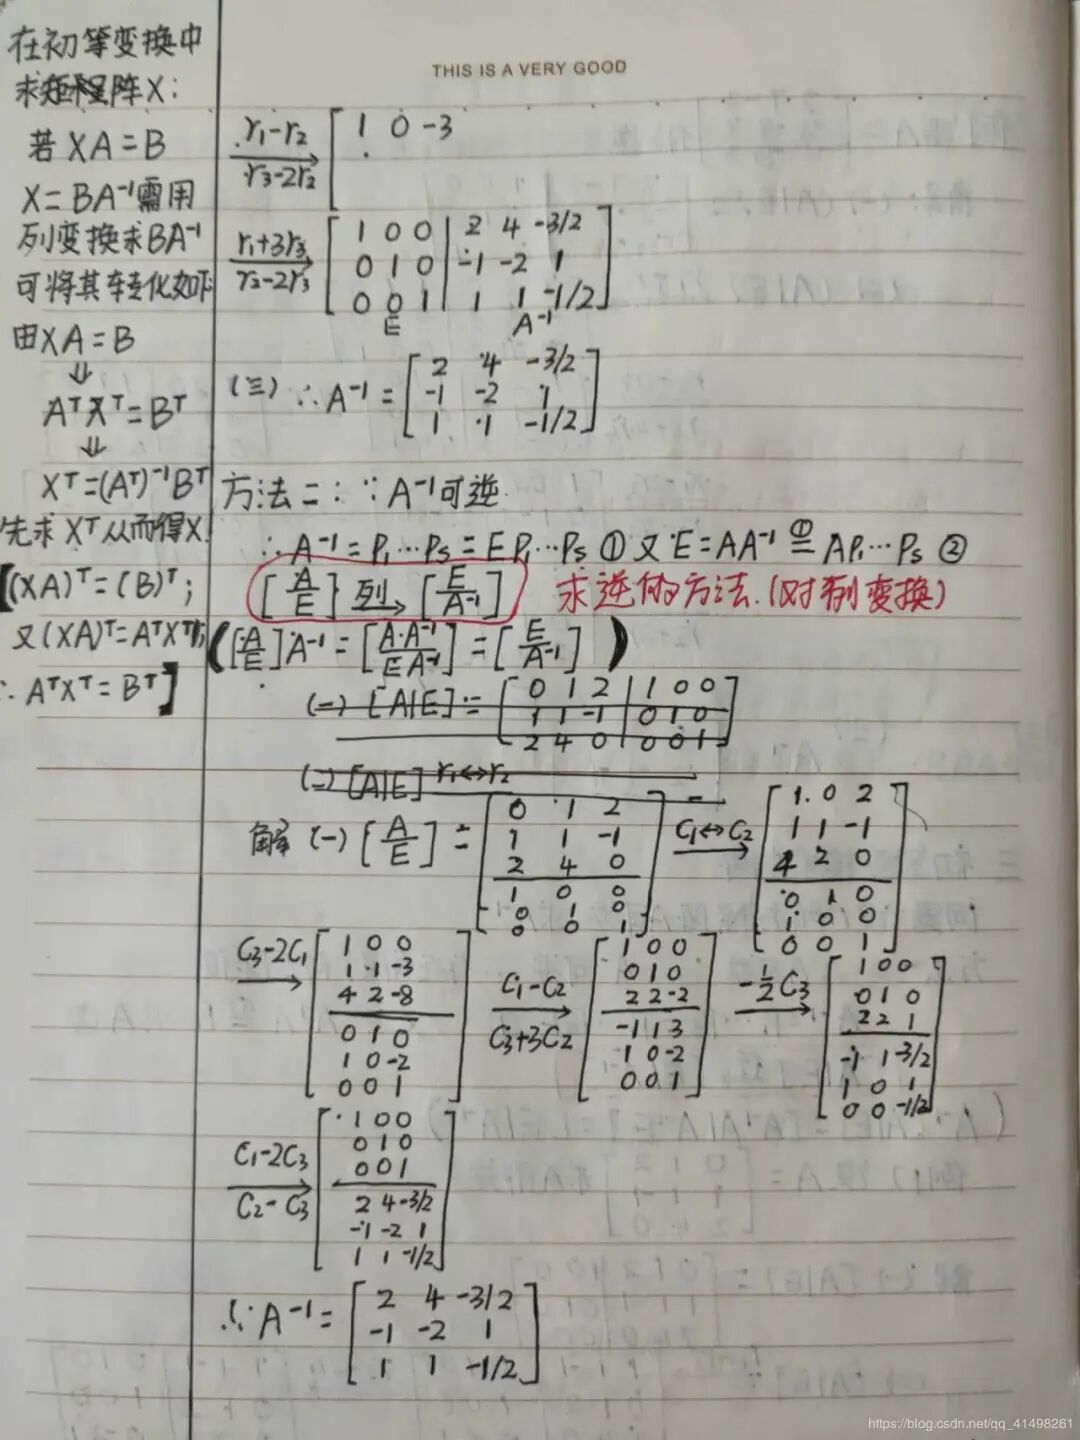 THIS IS A VERY GOOD
在初等变换中
求矩阵X:
若XA=B
X=BA⁻¹需用
列变换求BA⁻¹
可将其转化如下
由XA=B
⇓
AᵀXᵀ=Bᵀ
⇓
Xᵀ=(Aᵀ)⁻¹Bᵀ
先求Xᵀ从而得X
【(XA)ᵀ=(B)ᵀ;
又(XA)ᵀ=AᵀXᵀ;
∴AᵀXᵀ=Bᵀ】
r₁-r₂
r₃-2r₂
1 0 -3
r₁+3r₃
r₂-2r₃
1 0 0 | 2 4 -3/2
0 1 0 | -1 -2 1
0 0 1 | 1 1 -1/2
E A⁻¹
(三) ∴A⁻¹=
2 4 -3/2
-1 -2 1
1 1 -1/2
方法二: ∵A⁻¹可逆
∴A⁻¹=P₁…Pₛ=EP₁…Pₛ ① 又E=AA⁻¹ ①= AP₁…Pₛ ②
[A/E] 列→ [E/A⁻¹] 求逆的方法.(对列变换)
([A/E]A⁻¹=[A·A⁻¹/EA⁻¹]=[E/A⁻¹])
(一) [A|E]=
0 1 2 | 1 0 0
1 1 -1 | 0 1 0
2 4 0 | 0 0 1
(二) [A|E] r₁↔r₂
解 (一) [A/E] =
0 1 2
1 1 -1
2 4 0
1 0 0
0 1 0
0 0 1
C₁↔C₂
1 0 2
1 1 -1
4 2 0
0 1 0
1 0 0
0 0 1
C₃-2C₁
1 0 0
1 1 -3
4 2 -8
0 1 0
1 0 -2
0 0 1
C₁-C₂
C₃+3C₂
1 0 0
0 1 0
2 2 -2
-1 1 3
1 0 -2
0 0 1
-1/2 C₃
1 0 0
0 1 0
2 2 1
-1 1 -3/2
1 0 1
0 0 -1/2
C₁-2C₃
C₂-C₃
1 0 0
0 1 0
0 0 1
2 4 -3/2
-1 -2 1
1 1 -1/2
∴A⁻¹=
2 4 -3/2
-1 -2 1
1 1 -1/2
https://blog.csdn.net/qq_41498261